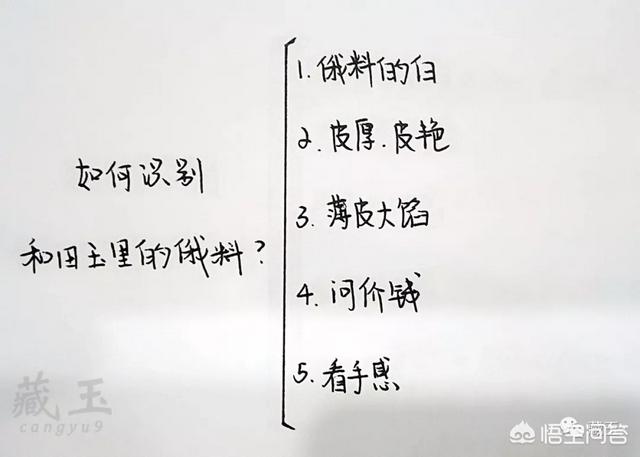 如何识别
和田玉里的俄料?
1. 俄料的白
2. 皮厚.皮艳
3. 薄皮大馅
4. 问价钱
5. 看手感
藏玉
cangyu9
藏玉
悟空问答